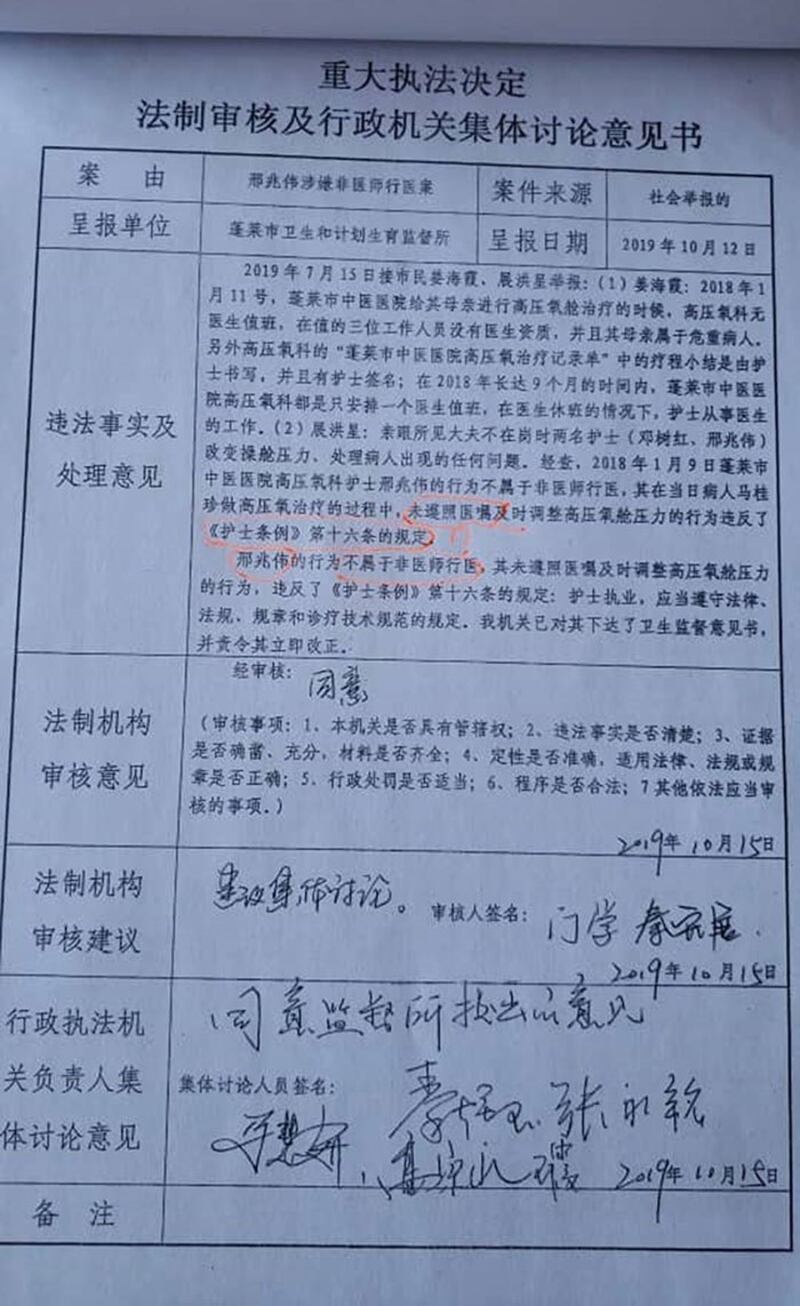 重大执法决定
法制审核及行政机关集体讨论意见书
案 由
邢兆伟涉嫌非医师行医案
案件来源
社会举报的
呈报单位
蓬莱市卫生和计划生育监督所
呈报日期
2019年10月12日
违法事实及
处理意见
2019年7月15日接市民姜海霞、展洪星举报：（1）姜海霞：2018年1
月11号，蓬莱市中医医院给其母亲进行高压氧舱治疗的时候，高压氧科无
医生值班，在值的三位工作人员没有医生资质，并且其母亲属于危重病人。
另外高压氧科的“蓬莱市中医医院高压氧治疗记录单”中的疗程小结是由护
士书写，并且有护士签名；在2018年长达9个月的时间内，蓬莱市中医医
院高压氧科都是只安排一个医生值班，在医生休班的情况下，护士从事医生
的工作。（2）展洪星：亲眼所见大夫不在岗时两名护士（邓树红、邢兆伟）
改变操舱压力、处理病人出现的任何问题。经查，2018年1月9日蓬莱市
中医医院高压氧科护士邢兆伟的行为不属于非医师行医，其在当日病人马桂
珍做高压氧治疗的过程中，未遵照医嘱及时调整高压氧舱压力的行为违反了
《护士条例》第十六条的规定。
邢兆伟的行为不属于非医师行医，其未遵照医嘱及时调整高压氧舱压力
的行为，违反了《护士条例》第十六条的规定：护士执业，应当遵守法律、
法规、规章和诊疗技术规范的规定。我机关已对其下达了卫生监督意见书，
并责令其立即改正。
法制机构
审核意见
经审核：同意
（审核事项：1、本机关是否具有管辖权；2、违法事实是否清楚；3、证据
是否确凿、充分，材料是否齐全；4、定性是否准确，适用法律、法规或规
章是否正确；5、行政处罚是否适当；6、程序是否合法；7其他依法应当审
核的事项。）
2019年10月15日
法制机构
审核建议
建议集体讨论。
审核人签名：
门学
2019年10月15日
行政执法机
关负责人集
体讨论意见
同意监督所提出的意见
集体讨论人员签名：
2019年10月15日
备 注